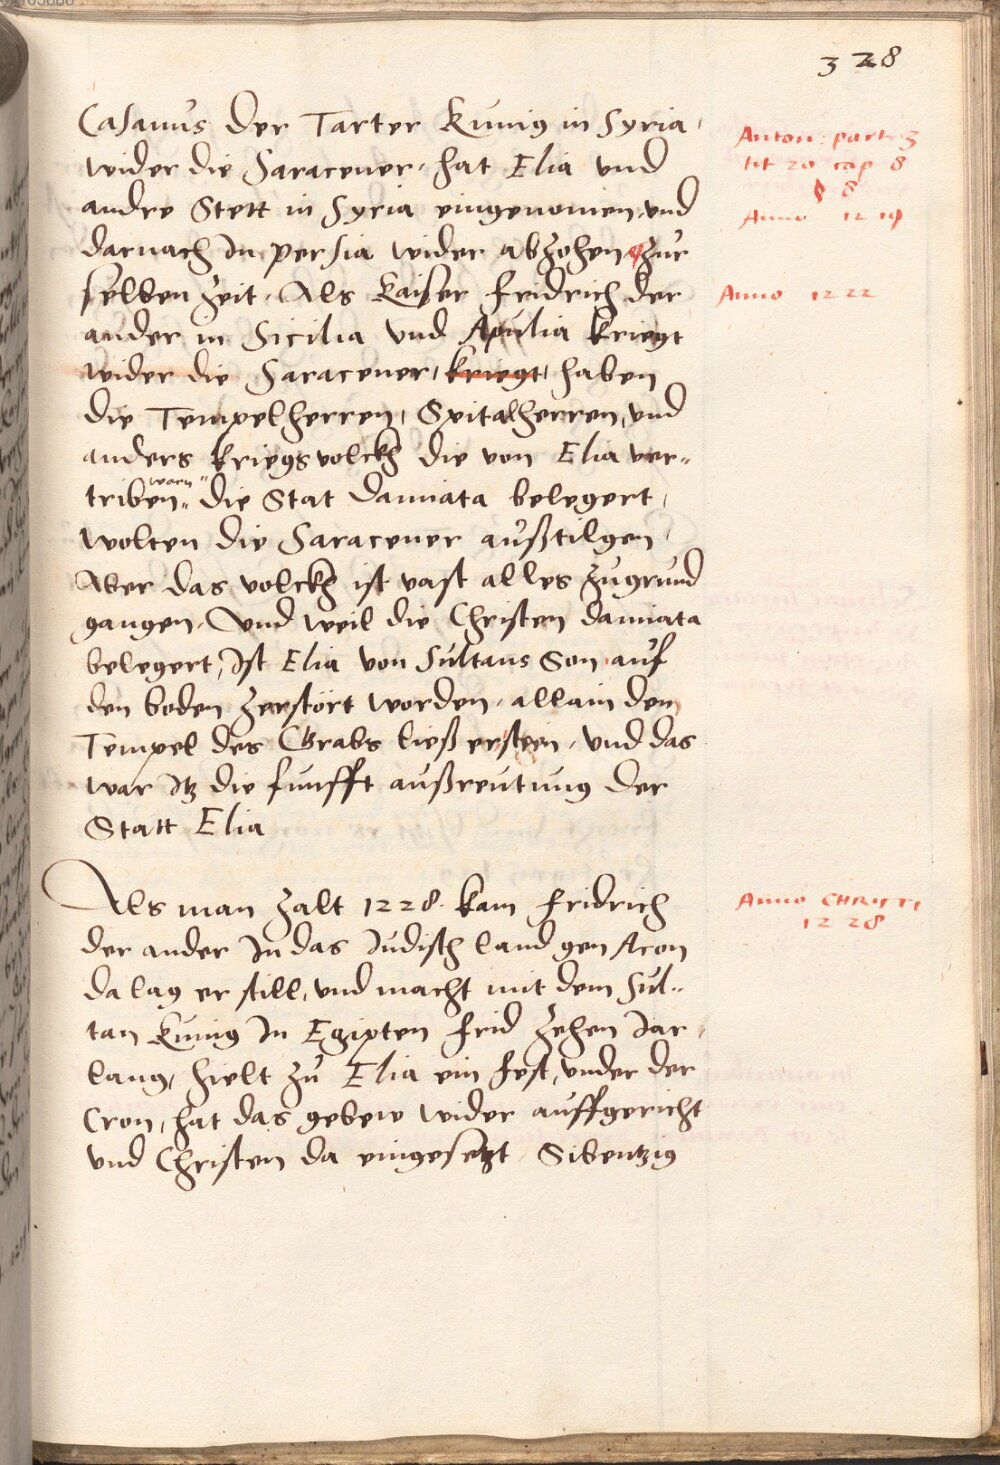 328
Casanus der Tarter Kunig in Syria,
wider die Saracener, hat Elia und
andre Stett in Syria eingenomen, und
darnach In persia wider abzohen, zur
selben Zeit, Als Kaiser fridrich der
ander in Sicilia und Apulia kriegt
wider die Saracener, kriegt, haben
die Tempelherren, Spitalherren, und
anders kriegsvolckh die von Elia ver„
triben„ warn„ die Stat damiata belegert,
wolten die Saracener außtilgen,
Aber das volckh ist vast alles zu grund
gangen, Und weil die Christen damiata
belegert, Ist Elia von Sultans Son auf
den boden zerstört worden, allain dem
Tempel des Grabs ließ er steen, und das
war Itz die funfft außreutung der
Statt Elia
Als man zalt 1228. kam fridrich
der ander In das Judisch land gen Acon
da lag er still, und macht mit dem Sul„
tan Kunig In Egipten frid zehen Jar,
lang, hielt zu Elia ein fest, under der
Cron, hat das gebew wider auffgericht
und Christen da eingesetzt, Sibentzig
Anton: part 3
tit 20 cap 8
§ 8
Anno 1219
Anno 1222
Anno CHRISTI
1228